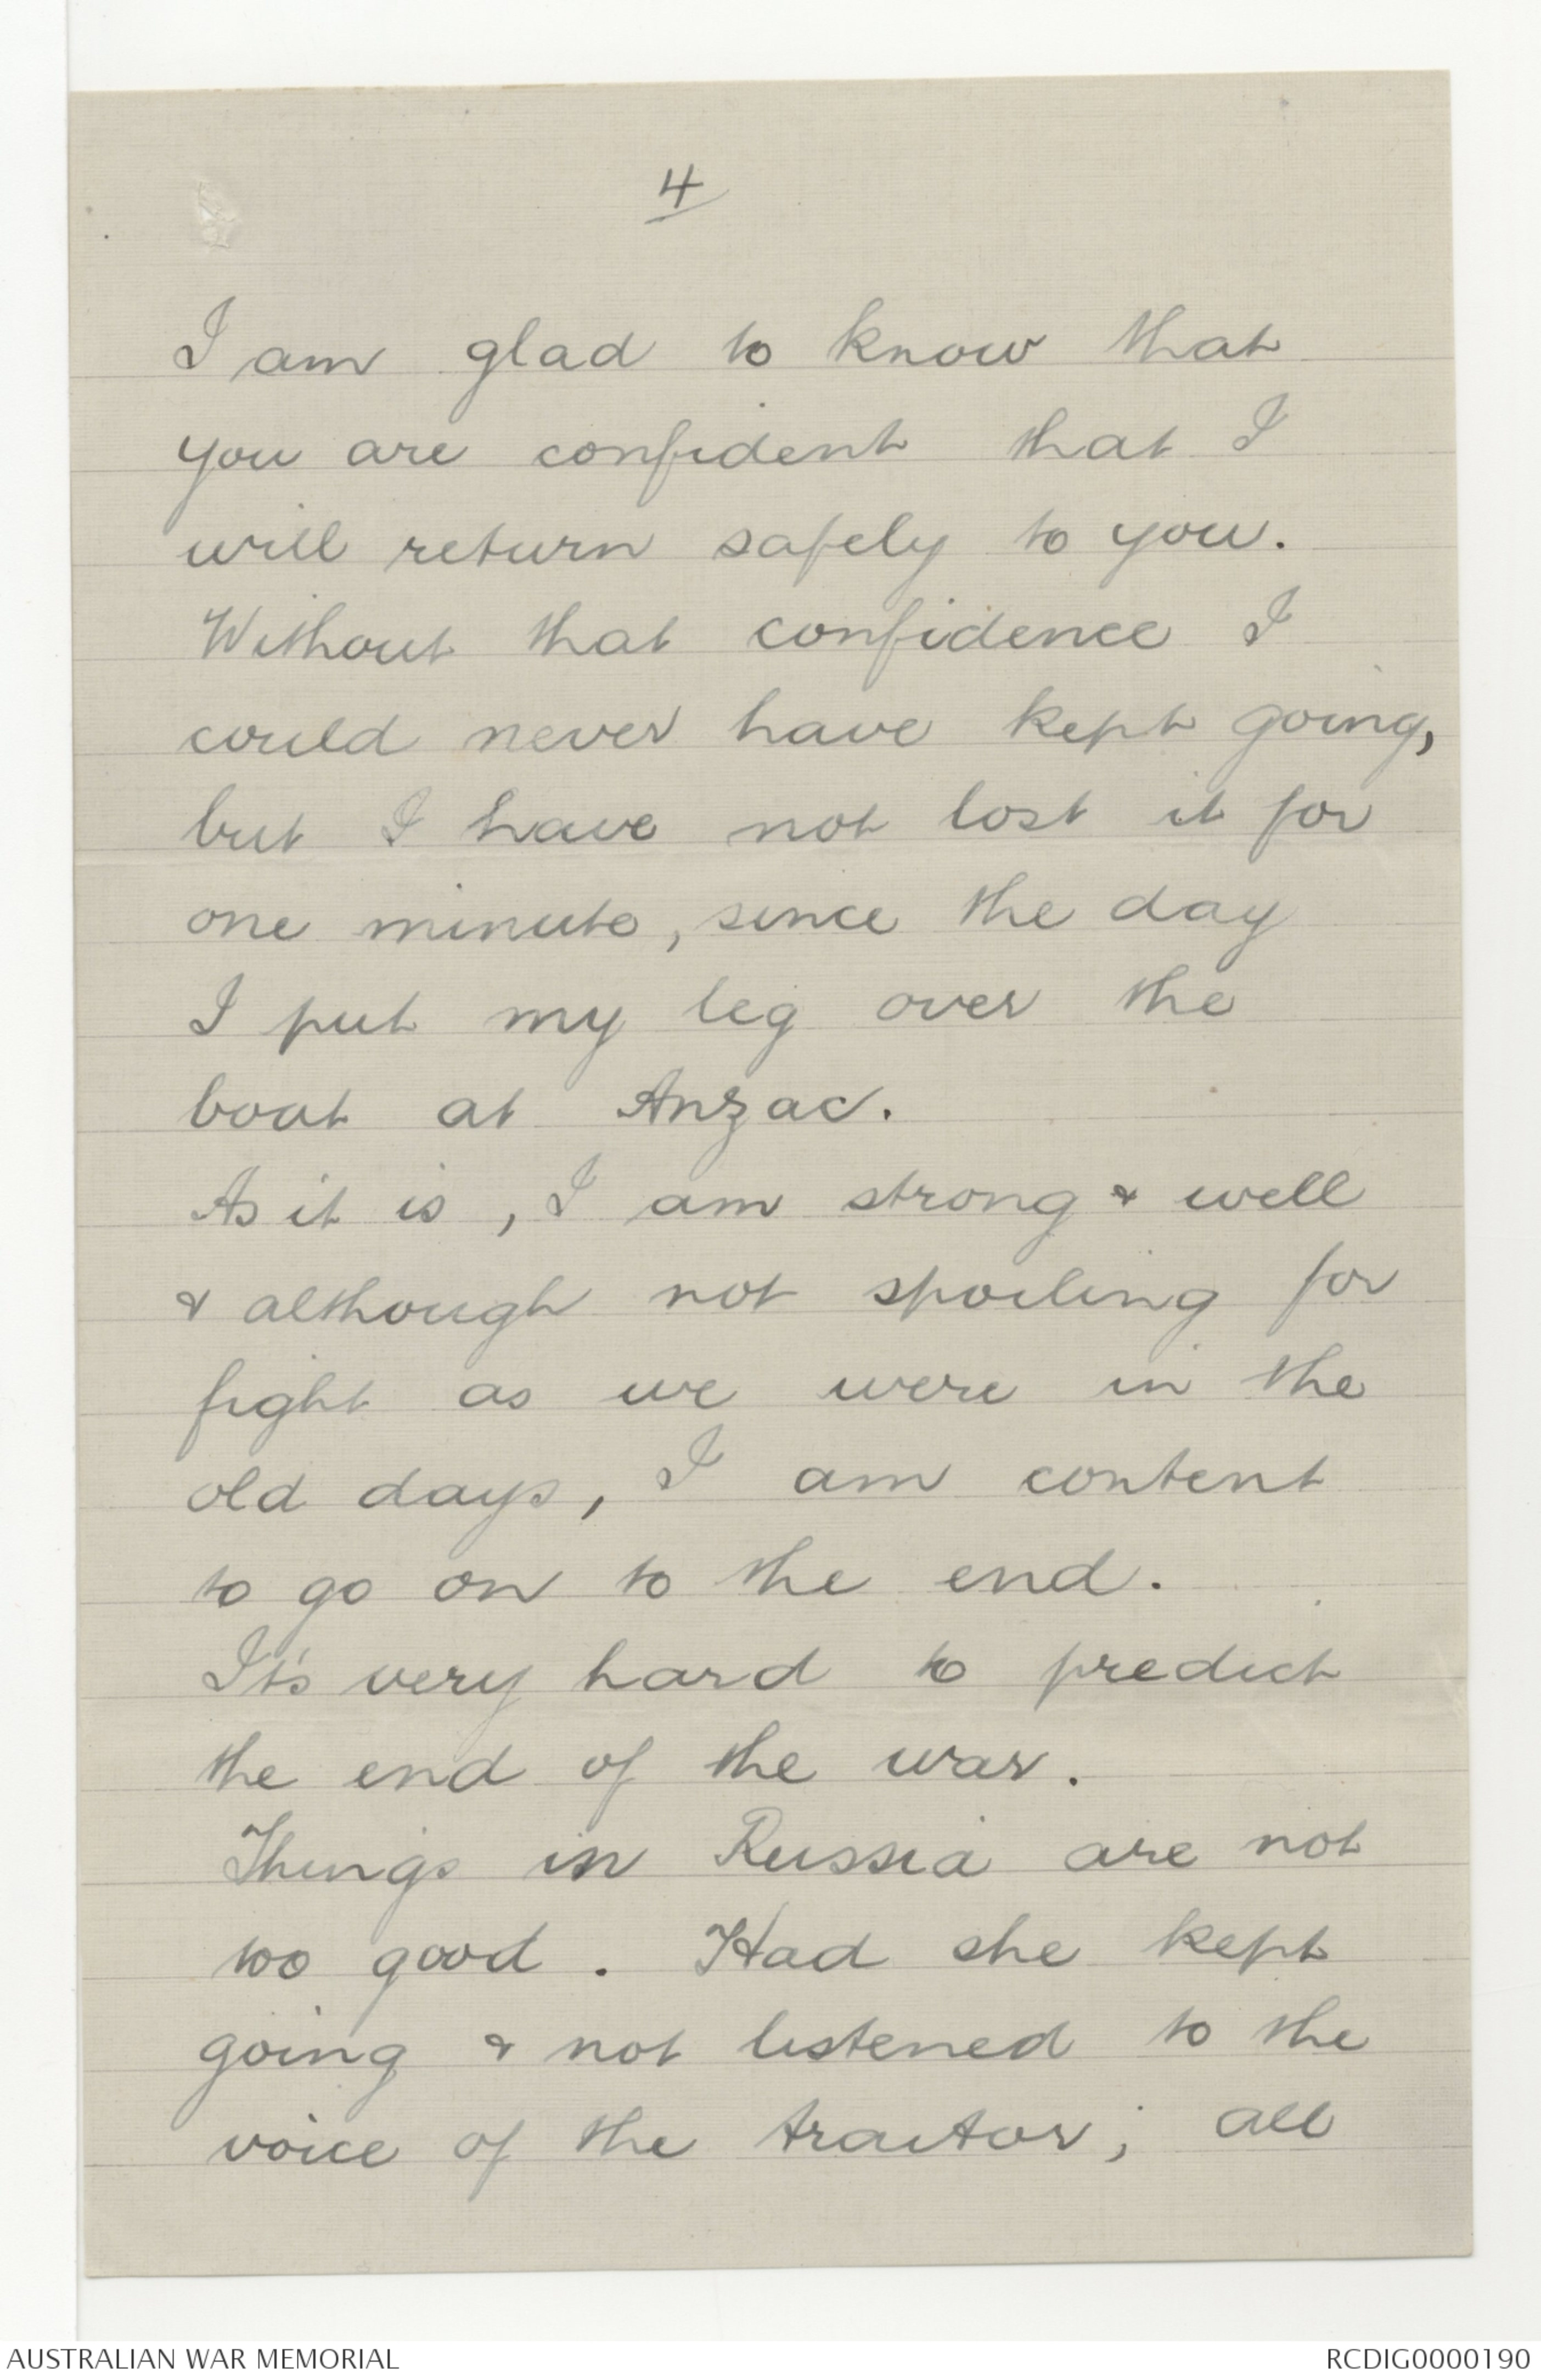 4
I am glad to know that
you are confident that I
will return safely to you.
Without that confidence I
could never have kept going,
but I have not lost it for
one minute, since the day
I put my leg over the
boat at Anzac.
As it is, I am strong & well
& although not spoiling for
fight as we were in the
old days, I am content
to go on to the end.
It's very hard to predict
the end of the war.
Things in Russia are not
too good. Had she kept
going & not listened to the
voice of the traitor; all
AUSTRALIAN WAR MEMORIAL
RCDIG0000190